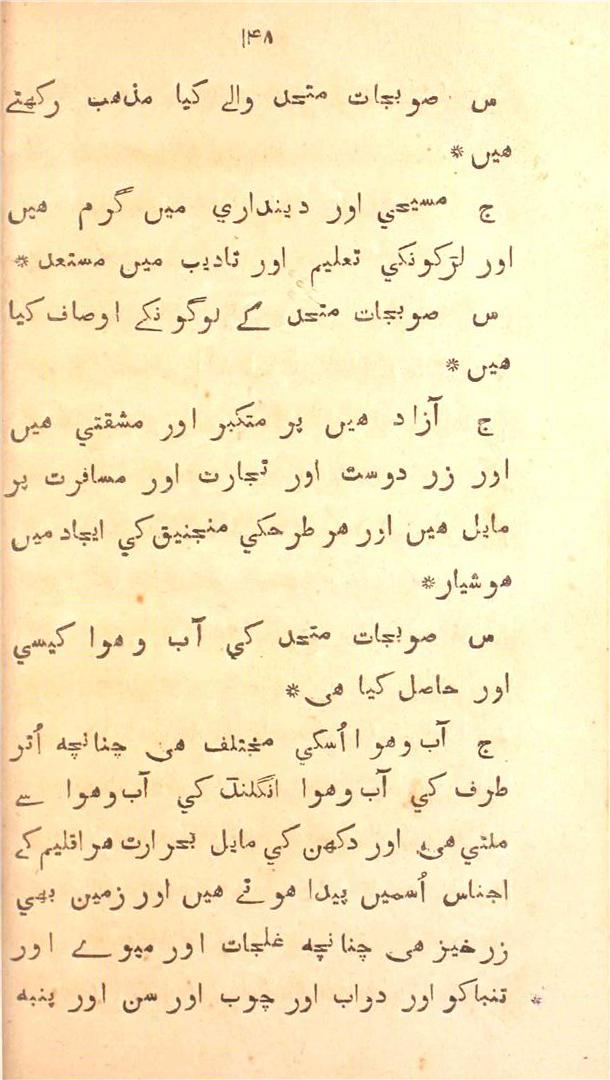 ۱۴۸
س صوبجات متحد والے کیا مذهب رکھتے
هیں *
ج مسیحي اور دینداري میں گرم هیں
اور لڑکونکي تعلیم اور تادیب میں مستعد *
س صوبجات متحد کے لوگونکے اوصاف کیا
هیں *
ج آزاد هیں پر متکبر اور مشقتي هیں
اور زر دوست اور تجارت اور مسافرت پر
مایل هیں اور هر طرحکي منجنیق کي ایجاد میں
هوشیار *
س صوبجات متحد کي آب و هوا کیسي
اور حاصل کیا هی *
ج آب و هوا اُسکي مختلف هی چنانچه اُتر
طرف کي آب و هوا انگلنڈ کي آب و هوا سے
ملتي هی اور دکھن کي مایل بحرارت هر اقلیم کے
اجناس اُسمیں پیدا هوتے هیں اور زمین بھي
زرخیز هی چنانچه غلجات اور میوے اور
تنباکو اور دواب اور چوب اور سن اور پنبه *